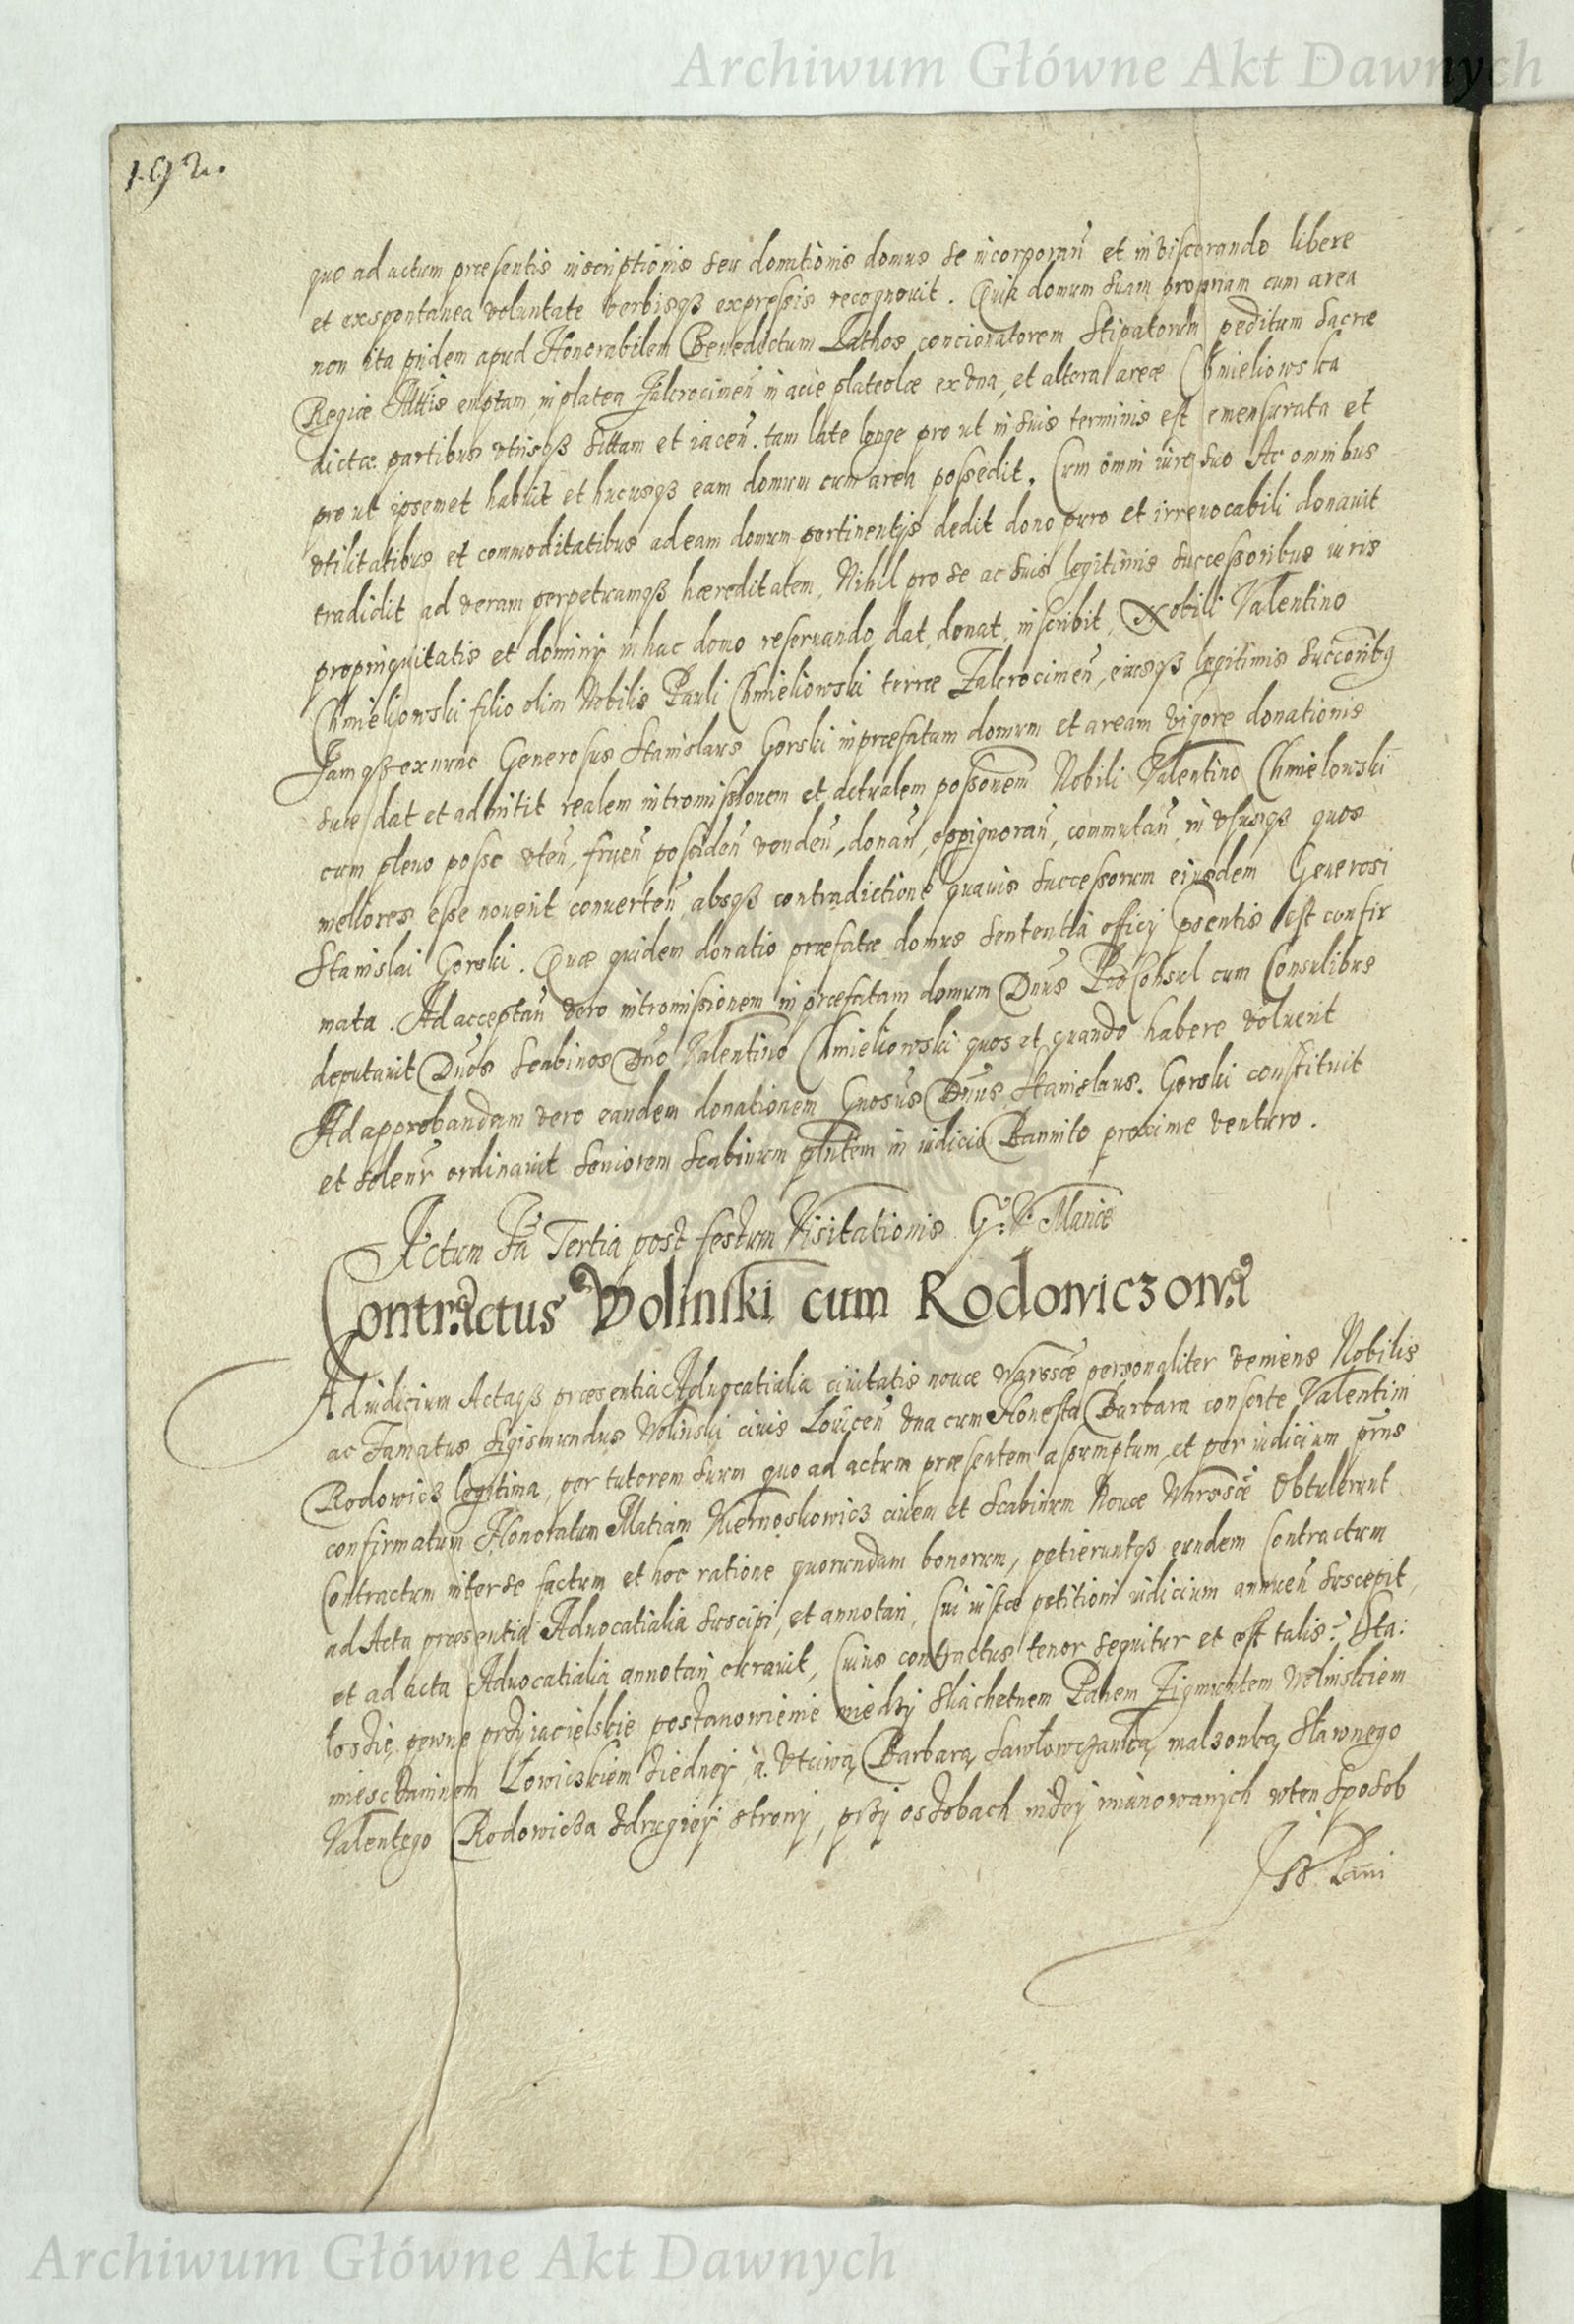 Archiwum Główne Akt Dawnych
192.
quo ad actum præsentis inscriptionis seu donationis domus se incorporan̄ et inviscerando libere
et exspontanea voluntate verbisqȝ expressis recognovit. Quia domum suam propriam cum area
non ita pridem apud Honorabilem Benedictum Lathos concionatorem stipatorum peditum Sacræ
Regiæ Mttis emptam in platea Zakrocimen̄ in acie plateolæ ex vna, et altera areæ Chmieliowska
dictæ partibus vtrisqȝ sittam et iacen̄. tam late longe pro ut in suis terminis est emensurata et
pro ut ipsemet habuit et hucusqȝ eam domum cum area possedit. Cum omni iure suo Ac omnibus
vtilitatibus et commoditatibus ad eam domum pertinentijs dedit dono puro et irrevocabili donauit
tradidit ad veram perpetuamqȝ hæreditatem, Nihil pro se ac suis legitimis successoribus iuris
propinquitatis et dominij in hac domo reservando dat, donat, inscribit, Nobili Valentino
Chmieliowski filio olim Nobilis Pauli Chmieliowski terræ Zakrocimen̄, eiusqȝ legitimis succoribꝰ
Jamqȝ exnunc Generosus Stanislaus Gorski in præfatam domum et aream vigore donationis
suæ dat et admitit realem intromissionem et actualem possonem Nobili Valentino Chmielowski
cum pleno posse vten̄, fruen̄ possiden̄ venden̄, donan̄, oppignoran̄, commutan̄ in vsusqȝ quos
meliores esse noverit converten̄, absqȝ contradictione quavis successorum eiusdem Generosi
Stanislai Gorski. Quæ quidem donatio præfatæ domus sententia officij pñtis est confir
mata. Ad acceptan̄ vero intromissionem in præfatam domum Dnus ProConsul cum Consulibus
deputavit Duos Scabinos Dno Valentino Chmieliowski quos et quando habere voluerit
Ad approbandam vero eandem donationem Gnosus Dnus Stanislaus Gorski constituit
et solenr ordinauit Seniorem Scabinum pñtem in iudicio Bannito proxime venturo.
Actum fa Tertia post festum Visitationis G: V: Mariæ
Contractus Wolinski cum Rodowiczowa
Ad iudicium Actaqȝ præsentia Aduocatialia ciuitatis nouæ Warssæ personaliter veniens Nobilis
ac Famatus Sigismundus Wolinski ciuis Lovicen̄ vna cum Honesta Barbara consorte Valentini
Rodowicz legitima, per tutorem suum quo ad actum præsentem assumptum, et per iudicium prus
confirmatum Honoratum Matiam Wiernoskowicz ciuem et scabinum Nouæ Warssæ Obtulerunt
Contractum inter se factum et hoc ratione quorundam bonorum, petieruntqȝ eundem Contractum
ad Acta præsentia Aduocatialia suscipi, et annotari, Cui iustæ petitioni iudicium annuen̄ suscepit,
et ad acta Aduocatialia annotari curauit, Cuius contractus tenor sequitur et est talis: Sta:
ło się pewne przyiacielskie postanowienie między Slachetnem Panem Zigmuntem Wolinskiem
miesczaninem Łowickiem ziedney, a vtciwą Barbarą Sawłowczanką małzonką Sławnego
Valentego Rodowicza zdrugiey strony, przy osobach niżey mianowanych wten sposob
Jż Pani
Archiwum Główne Akt Dawnych